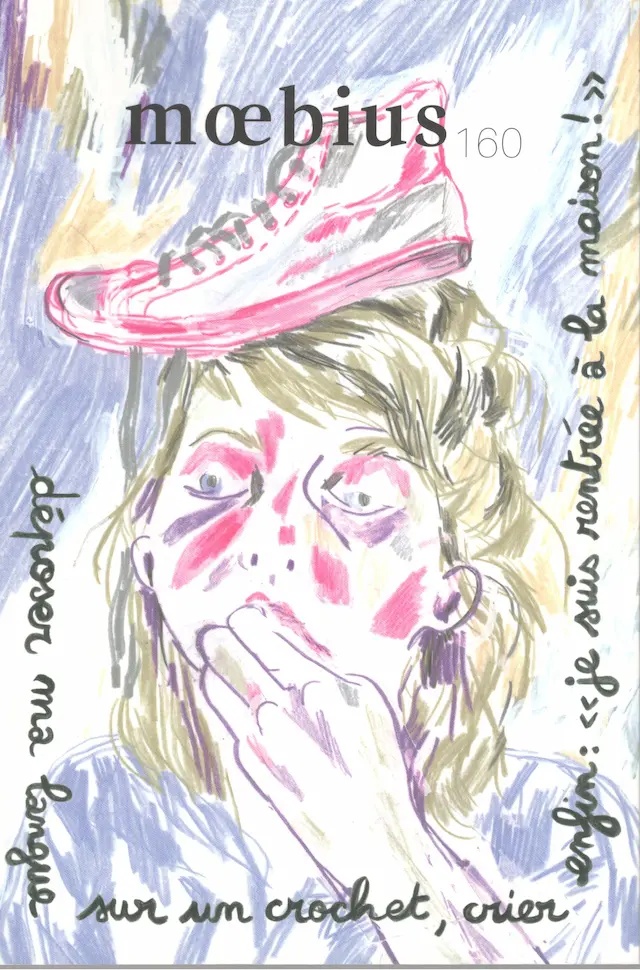 mœbius 160
déposer ma langue
sur un crochet, crier
enfin : «je suis rentrée à la maison!»